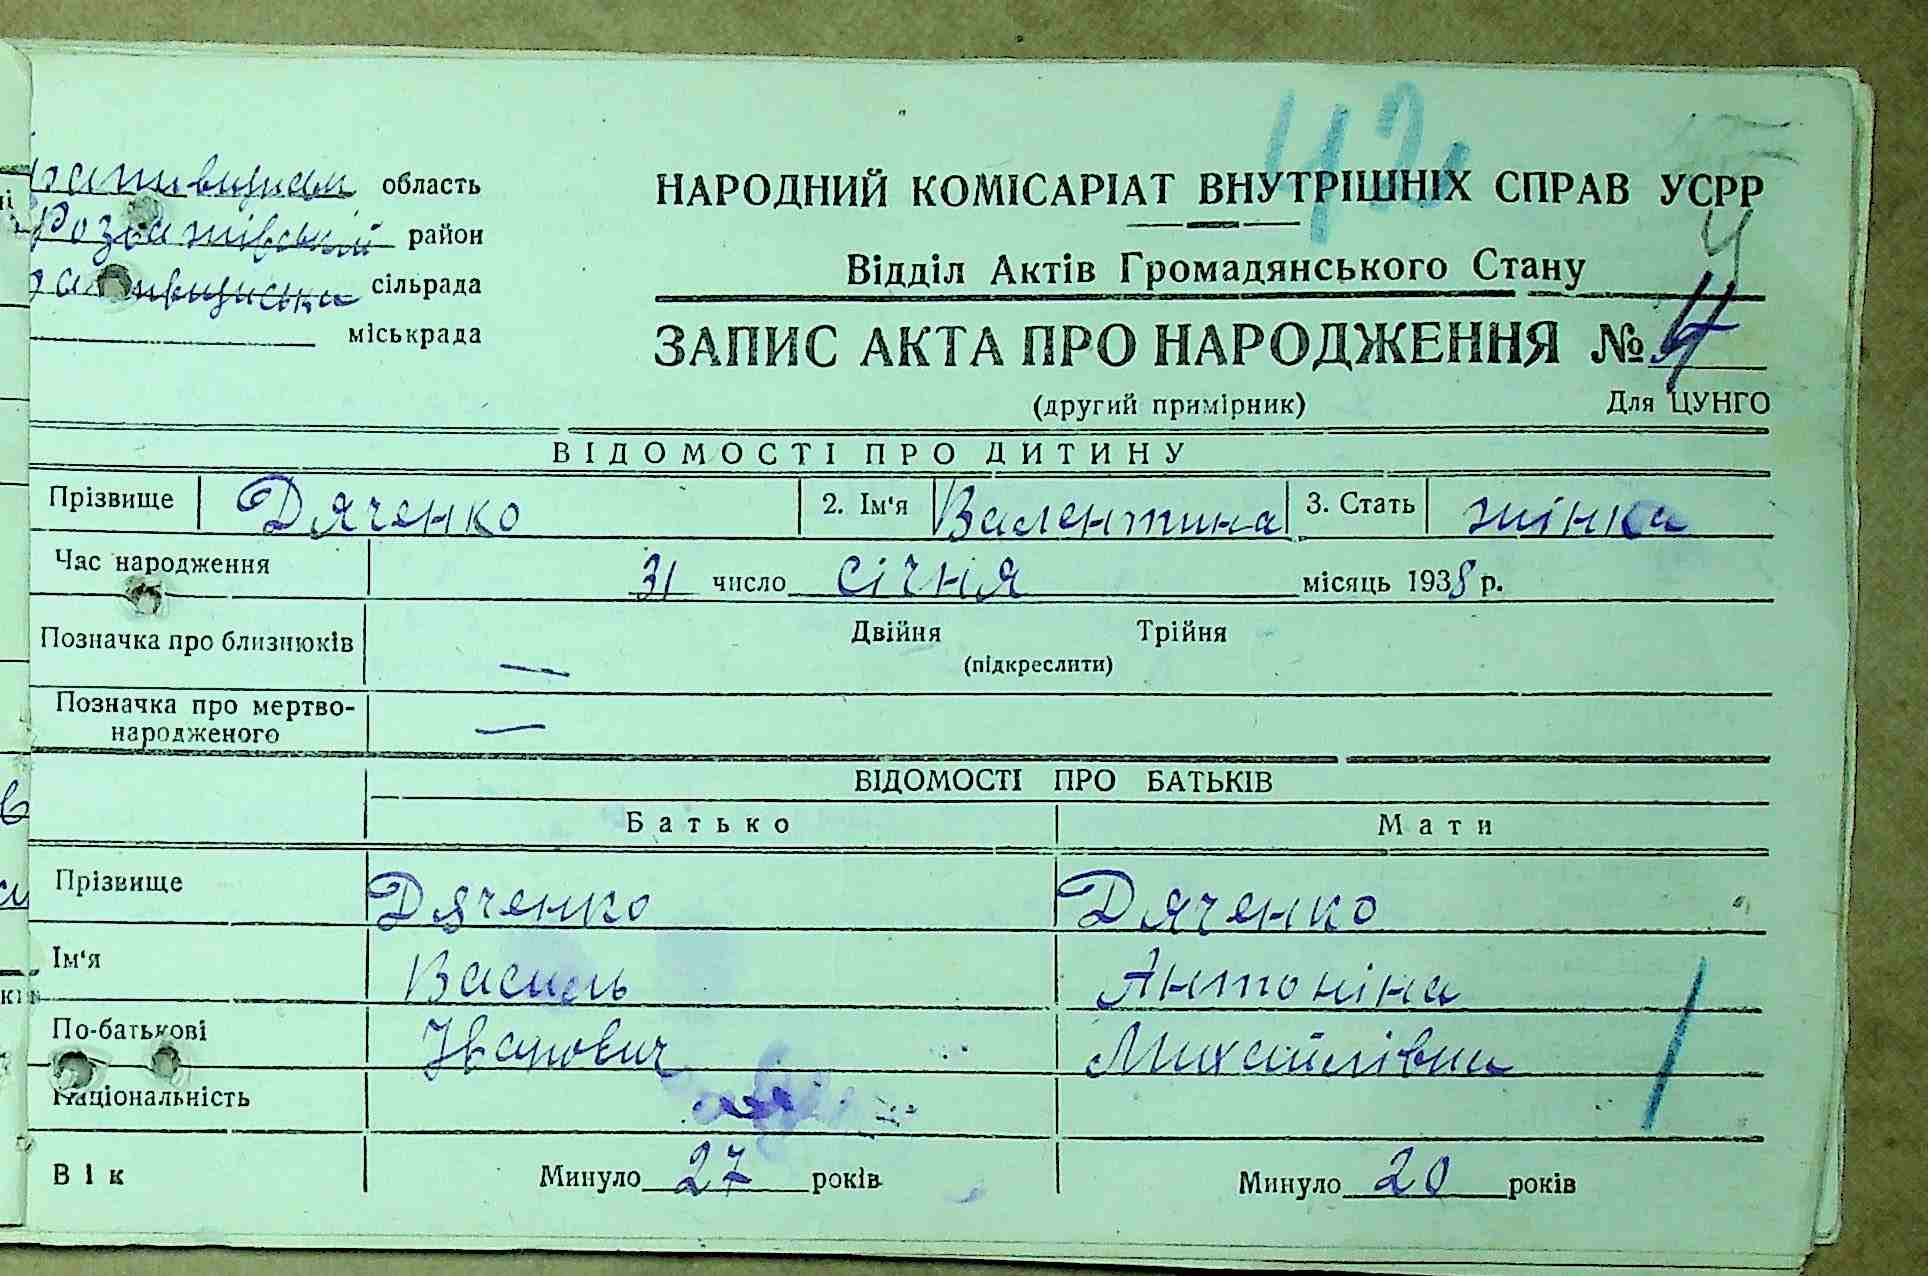 область
Розважівський район
сільрада
міськрада
42
НАРОДНИЙ КОМІСАРІАТ ВНУТРІШНІХ СПРАВ УСРР
4
Відділ Актів Громадянського Стану
ЗАПИС АКТА ПРО НАРОДЖЕННЯ № 4
(другий примірник) Для ЦУНГО
ВІДОМОСТІ ПРО ДИТИНУ
Прізвище Дяченко 2. Ім'я Валентина 3. Стать жінка
Час народження 31 число січня місяць 1938 р.
Позначка про близнюків — Двійня Трійня
(підкреслити)
Позначка про мертво-
народженого —
ВІДОМОСТІ ПРО БАТЬКІВ
Батько Мати
Прізвище Дяченко Дяченко
Ім'я Василь Антоніна
По-батькові Іванович Михайлівна
Національність
Вік Минуло 27 років Минуло 20 років